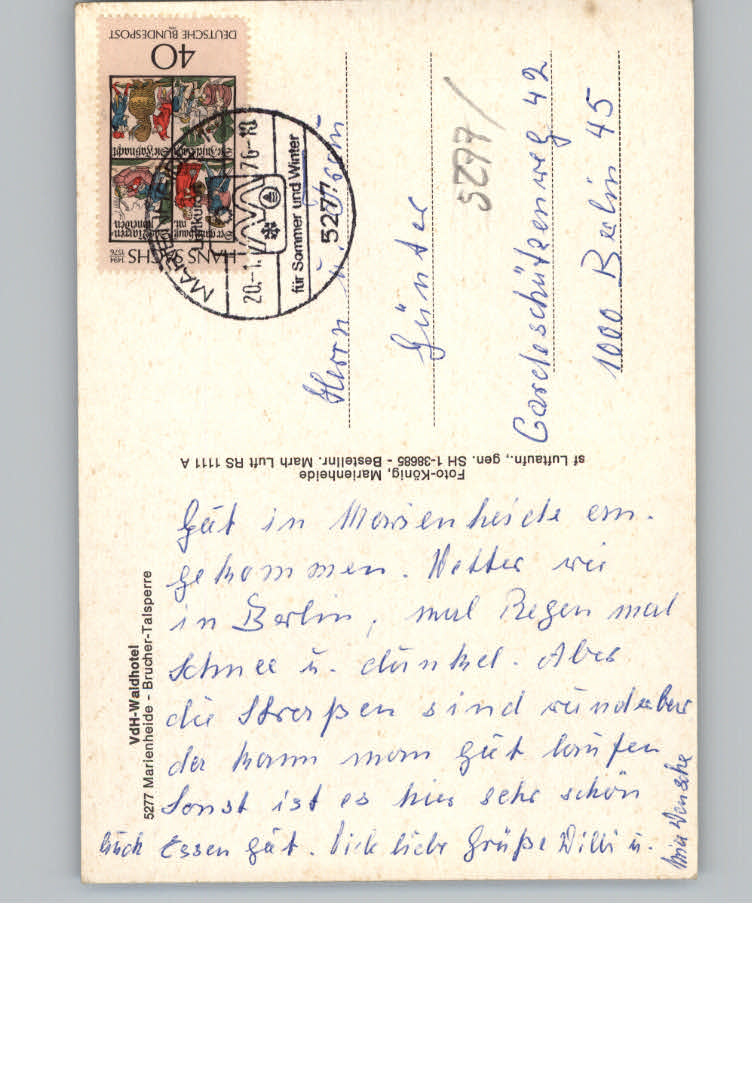 DEUTSCHE BUNDESPOST
40
HANS SACHS
1494
1576
MARIENHEIDE
Luftkurort
20.-1. 76-18
für Sommer und Winter
5277
5277/
Herrn u.
Günter
Gardeschützenweg 42
1000 Berlin 45
Foto-König, Marienheide
sf Luftaufn., gen. SH 1-38685 - Bestellnr. Marh Luft RS 1111 A
VdH-Waldhotel
5277 Marienheide - Brucher-Talsperre
Gut in Marienheide an-
gekommen. Wetter wie
in Berlin, mal Regen mal
Schnee u. dunkel. Aber
die Straßen sind wunderbar
da kann man gut laufen
Sonst ist es hier sehr schön
auch Essen gut. Viele liebe Grüße Willi u.